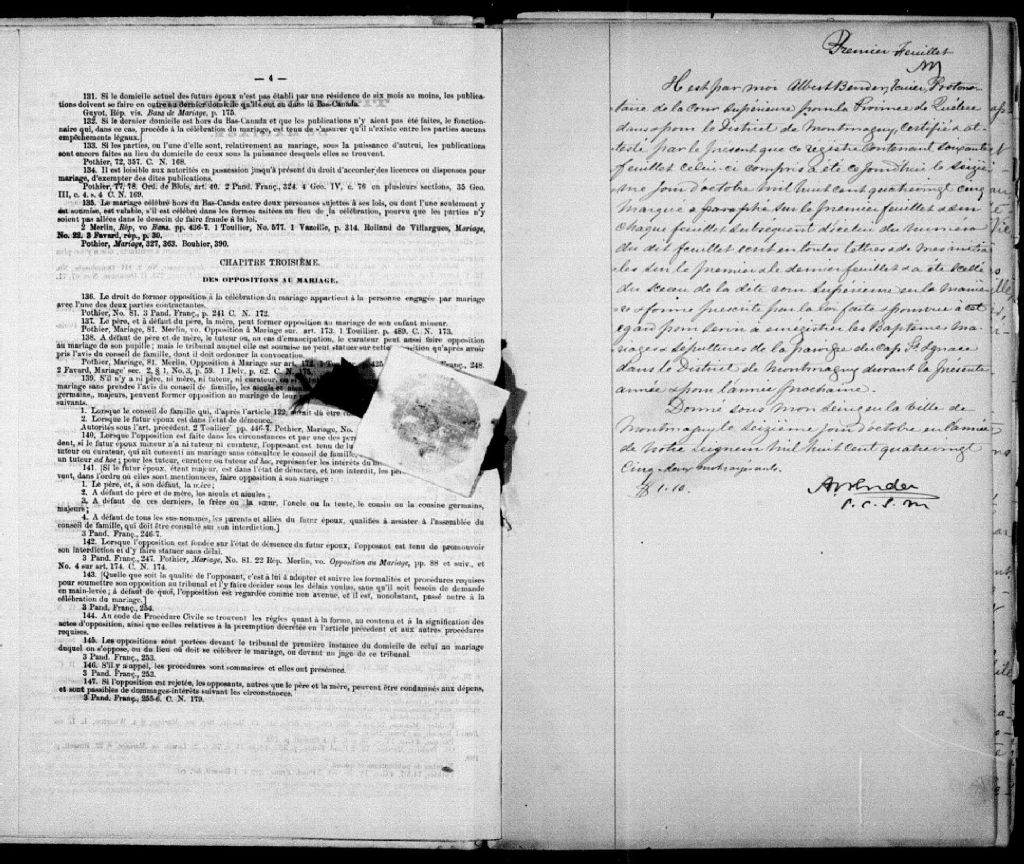 — 4 —
131. Si le domicile actuel des futurs époux n'est pas établi par une résidence de six mois au moins, les publica-
tions doivent se faire en outre au dernier domicile qu'ils ont eu dans le Bas-Canada.
Guyot, Rép. vis. Bans de Mariage, p. 175.
132. Si le dernier domicile est hors du Bas-Canada et que les publications n'y aient pas été faites, le fonction-
naire qui, dans ce cas, procède à la célébration du mariage, est tenu de s'assurer qu'il n'existe entre les parties aucuns
empêchements légaux.]
133. Si les parties, ou l'une d'elle sont, relativement au mariage, sous la puissance d'autrui, les publications
sont encore faites au lieu du domicile de ceux sous la puissance desquels elles se trouvent.
Pothier, 72, 357. C. N. 168.
134. Il est loisible aux autorités en possession jusqu'à présent du droit d'accorder les licences ou dispenses pour
mariage, d'exempter des dites publications.
Pothier, 77, 78. Ord. de Blois, art. 40. 2 Pand. Franç., 324. 4 Geo. IV, c. 76 en plusieurs sections, 35 Geo.
III, c. 4. s. 4 C. N. 169.
135. Le mariage célébré hors du Bas-Canda entre deux personnes sujettes à ses lois, ou dont l'une seulement y
est soumise, est valable, s'il est célébré dans les formes usitées au lieu de la célébration, pourvu que les parties n'y
soient pas allées dans le dessein de faire fraude à la loi.
2 Merlin, Rép, vo Bans. pp. 436-7. 1 Toullier, No. 577. 1 Vazeille, p. 314. Rolland de Villargues, Mariage,
No. 22. 3 Favard, rép., p. 30.
Pothier, Mariage, 327, 363. Bouhier, 390.
CHAPITRE TROISIÈME.
DES OPPOSITIONS AU MARIAGE.
136. Le droit de former opposition à la célébration du mariage appartient à la personne engagée par mariage
avec l'une des deux parties contractantes.
Pothier, No. 81. 3 Pand. Franç., p. 241 C. N. 172.
137. Le père, et à défaut du père, la mère, peut former opposition au mariage de son enfant mineur.
Pothier, Mariage, 81. Merlin, vo. Opposition à Mariage sur. art. 173. 1 Touillier. p. 489. C. N. 173.
138. A défaut de père et de mère, le tuteur ou, au cas d'émancipation, le curateur peut aussi faire opposition
au mariage de son pupille ; mais le tribunal auquel elle est soumise ne peut statuer sur cette opposition qu'après avoir
pris l'avis du conseil de famille, dont il doit ordonner la convocation.
Pothier, Mariage, 81. Merlin, Opposition à Mariage sur art. 175 425 Franç., 248.
2 Favard, Mariage sec. 2, § 1, No. 3, p. 59. 1 Delv. p. 62. C. N. 175.
139. S'il n'y a ni père, ni mère, ni tuteur, ni curateur,
mariage sans prendre l'avis du conseil de famille, les aïeuls et aïeules
germains, majeurs, peuvent former opposition au mariage de leur
suivants.
1. Lorsque le conseil de famille qui, d'après l'article 122, aurait dû être
2. Lorsque le futur époux est dans l'état de démence.
Autorités sous l'art. précédent. 2 Toullier pp. 446-7. Pothier, Mariage, No.
140. Lorsque l'opposition est faite dans les circonstances et par une des
dent, si le futur époux mineur n'a ni tuteur ni curateur, l'opposant est tenu de lu
tuteur ou curateur, qui ait consenti au mariage sans consulter le conseil de famille,
un tuteur ad hoc ; pour les tuteur, curateur ou tuteur ad hoc, représenter les intérêts du
141. [Si le futur époux, étant majeur, est dans l'état de démence, et non interdit, les
vent, dans l'ordre où elles sont mentionnées, faire opposition à son mariage :
1. Le père, et, à son défaut, la mère ;
2. A défaut de père et de mère, les aïeuls et aïeules ;
3. A défaut de ces derniers, le frère ou la sœur, l'oncle ou la tente, le cousin ou la cousine germains,
majeurs ;
4. A défaut de tous les sus-nommés, les parents et alliés du futur époux, qualifiés à assister à l'assemblée du
conseil de famille, qui doit être consulté sur son interdiction.]
3 Pand. Franç., 246-7.
142. Lorsque l'opposition est fondée sur l'état de démence du futur époux, l'opposant est tenu de promouvoir
son interdiction et d'y faire statuer sans délai.
3 Pand. Franç., 247. Pothier, Mariage, No. 81. 22 Rép. Merlin, vo. Opposition au Mariage, pp. 88 et suiv., et
No. 4 sur art. 174. C. N. 174.
143. [Quelle que soit la qualité de l'opposant, c'est à lui à adopter et suivre les formalités et procédures requises
pour soumettre son opposition au tribunal et l'y faire décider sous les délais voulus, sans qu'il soit besoin de demande
en main-levée ; à défaut de quoi, l'opposition est regardée comme non avenue, et il est, nonobstant, passé outre à la
célébration du mariage.]
3 Pand. Franç., 254.
144. Au code de Procédure Civile se trouvent les règles quant à la forme, au contenu et à la signification des
actes d'opposition, ainsi que celles relatives à la péremption décrétée en l'article précédent et aux autres procédures
requises.
145. Les oppositions sont portées devant le tribunal de première instance du domicile de celui au mariage
duquel on s'oppose, ou du lieu où doit se célébrer le mariage, ou devant un juge de ce tribunal.
3 Pand. Franç., 253.
146. S'il y a appel, les procédures sont sommaires et elles ont présence.
3 Pand. Franç., 253.
147. Si l'opposition est rejetée, les opposants, autres que le père et la mère, peuvent être condamnés aux dépens,
et sont passibles de dommages-intérêts suivant les circonstances.
3 Pand. Franç., 255-6. C. N. 179.
Premier Feuillet
Il est par moi Albert Bender, Ecuier, Protono-
taire de la Cour Supérieure pour la Province de Québec
dans & pour le District de Montmagny, certifié & at-
testé par le présent que ce registre contenant cinquante
feuillet celui-ci compris a été ce jourd'hui le seiziè-
me jour d'octobre mil huit cent quatrevingt cinq
Marqué & paraphé sur le premier feuillet & sur
chaque feuillet subséquent du numéro
du dit feuillet écrit en toutes lettres & de mes initia-
les sur le premier & le dernier feuillet & a été scellé
du sceau de la dite cour Supérieure en la manière
& forme prescrite par la loi faite & pourvue à cet
égard pour servir à enregistrer les Baptêmes Ma-
riages & Sépultures de la paroisse du Cap St Ignace
dans le District de Montmagny durant la présente
année & pour l'année prochaine.
Donné sous mon seing en la Ville de
Montmagny le seizième jour d'octobre en l'année
de Notre Seigneur Mil huit cent quatrevingt
Cinq.
$1.10.
A Bender
P. C. S. M